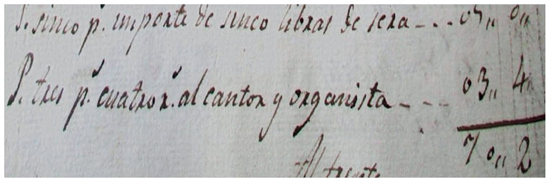 P. sinco p.s importe de sinco libras de sera --- 05,, 0,,
P. tres p.s cuatro r.s al cantor y organista --- 03,, 4
70,, 2
Al frente